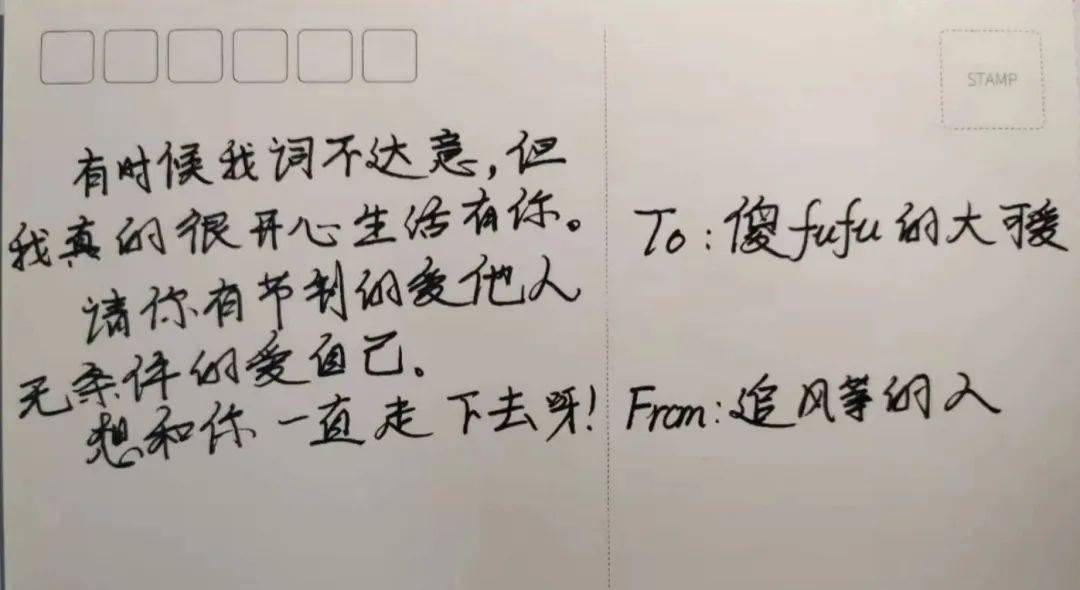 有时候我词不达意，但
我真的很开心生活有你。
请你有节制的爱他人
无条件的爱自己。
想和你一直走下去呀！
STAMP
To：傻fufu的大可爱
From：追风筝的人